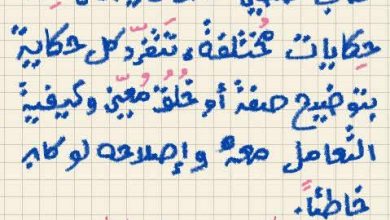 حِكايات مُختلفة، تَنفَرِد كل حكايةٍ
بتوضيح صفة أو خُلُق مُعيّن وكيفية
التَّعامل معه وإصلاحه لو كان
خاطئاً.